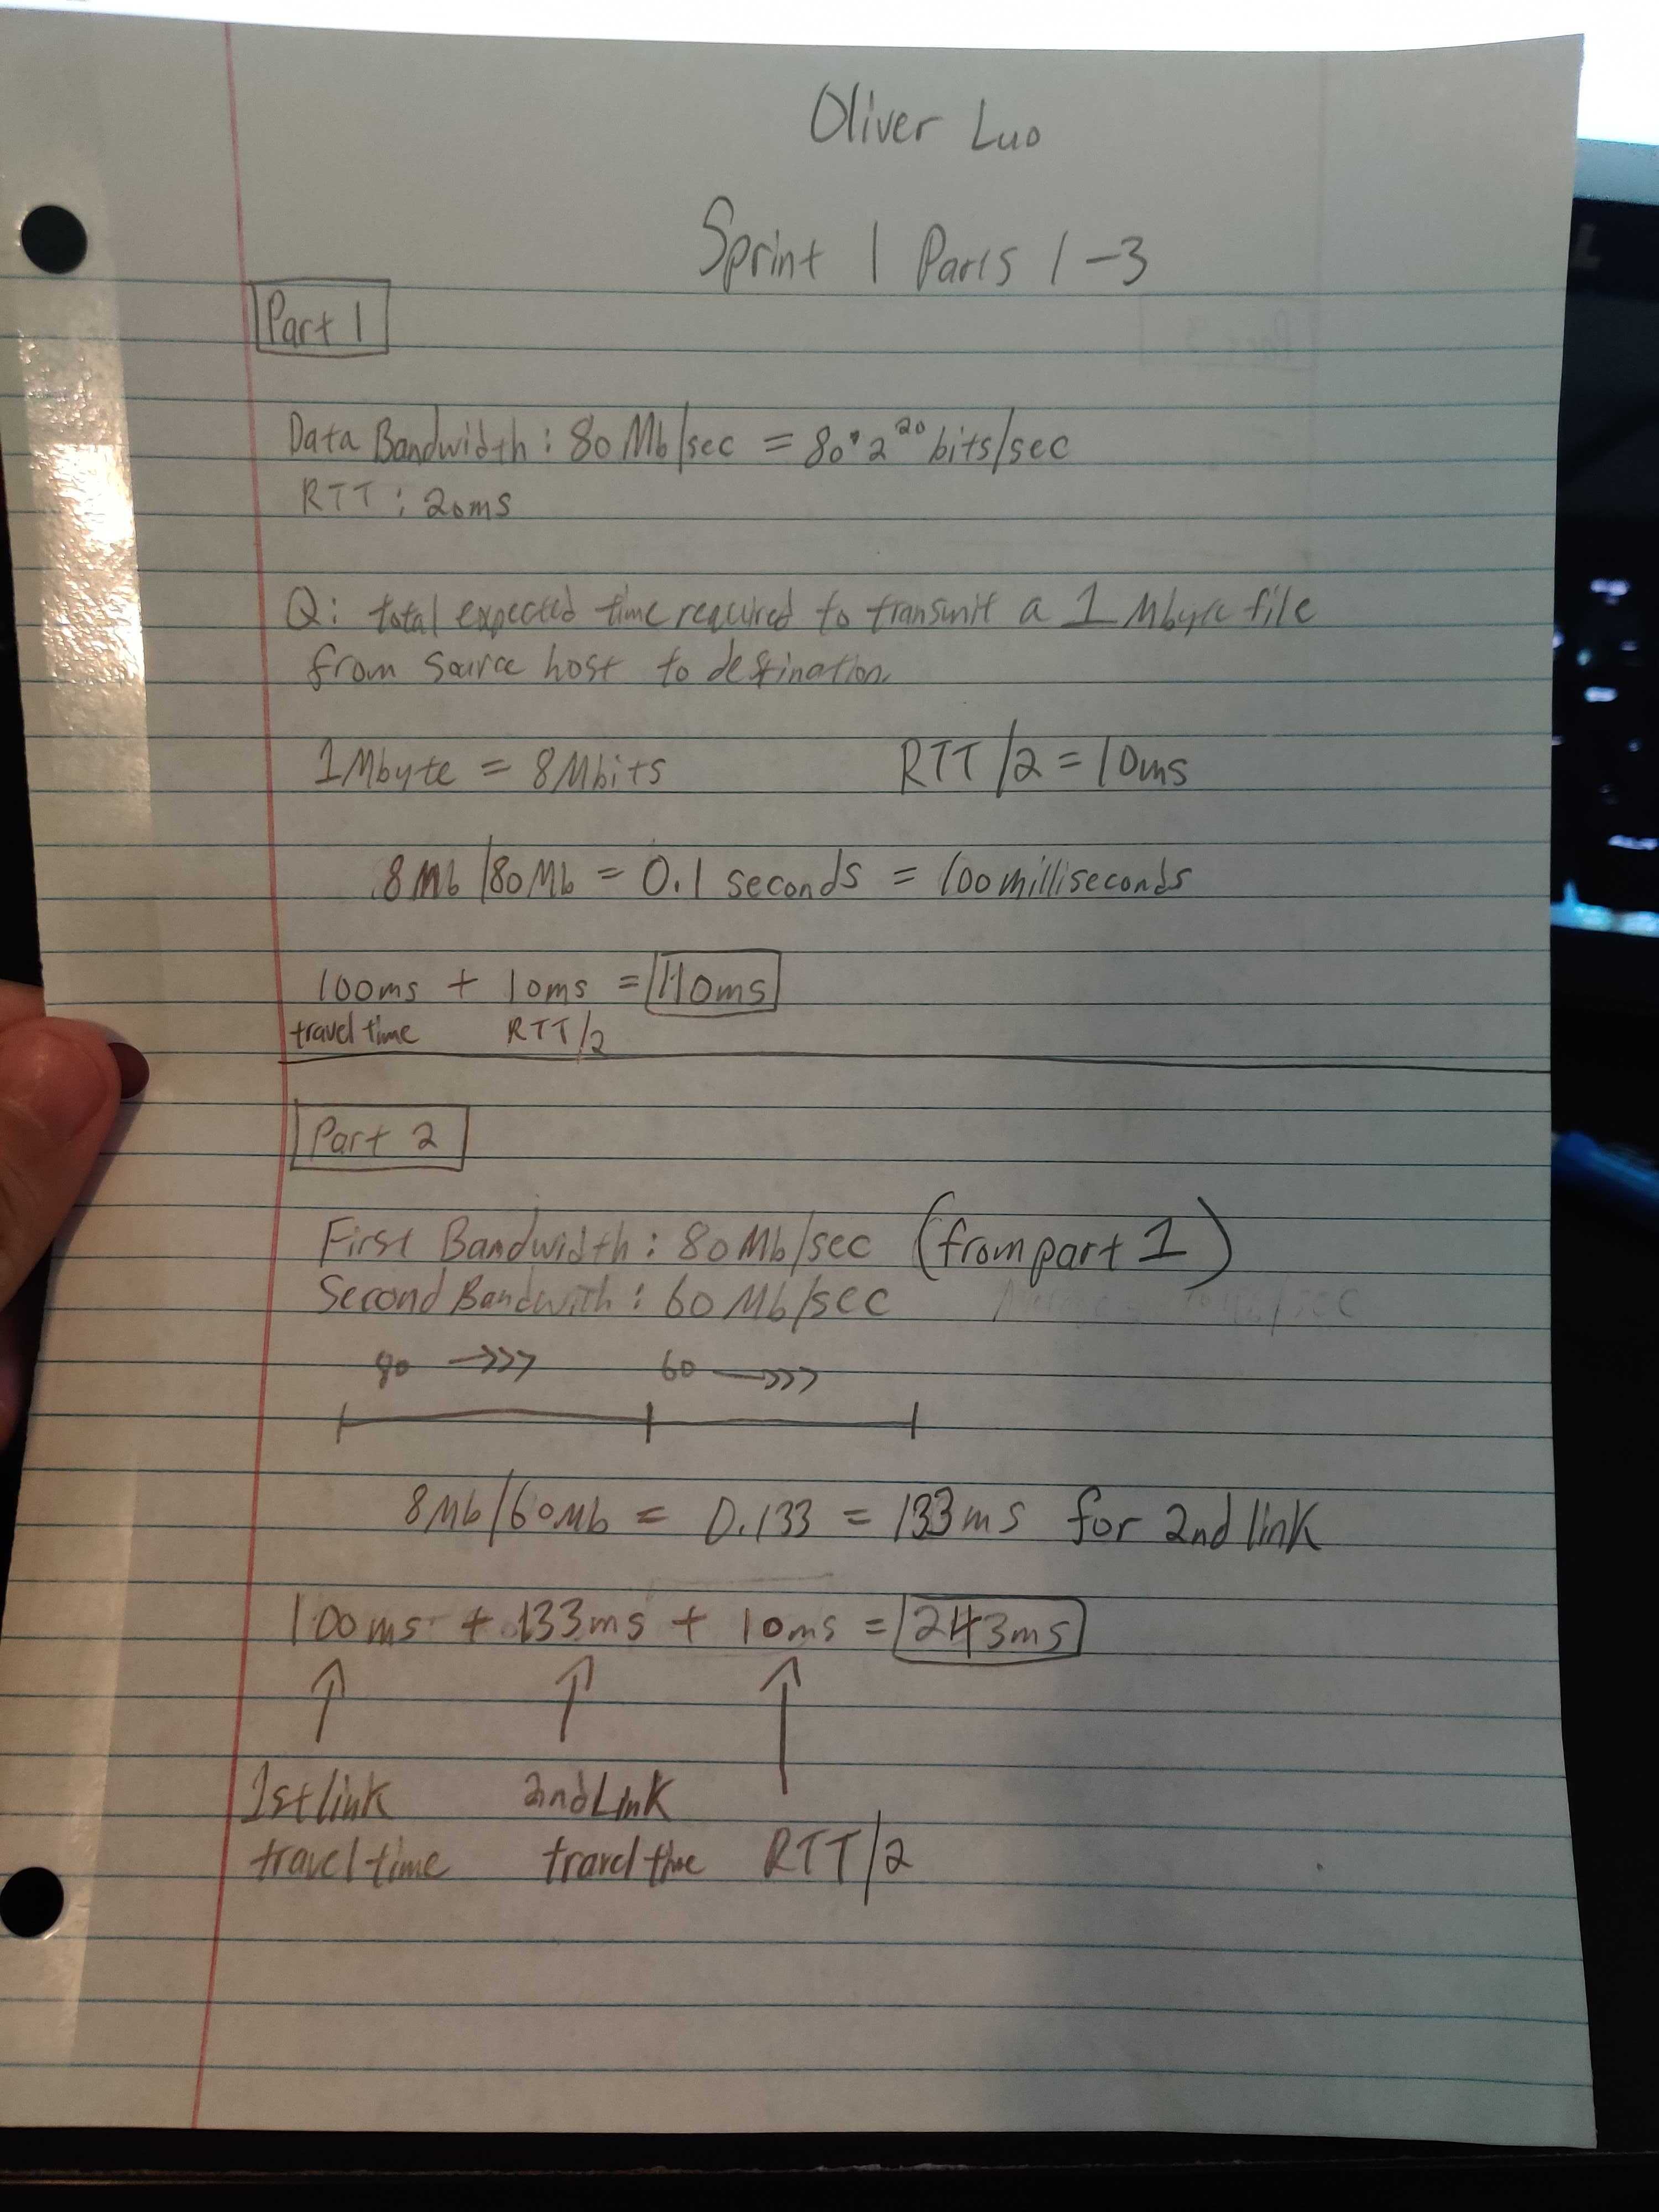 Oliver Luo
Sprint 1 Parts 1-3
Part 1
Data Bandwidth: 80 Mb/sec = 80·2^20 bits/sec
RTT: 20ms
Q: total expected time required to transmit a 1 Mbyte file
from source host to destination
1Mbyte = 8Mbits RTT/2 = 10ms
8Mb/80Mb = 0.1 seconds = 100milliseconds
100ms + 10ms = 110ms
travel time RTT/2
Part 2
First Bandwidth: 80Mb/sec (from part 1)
Second Bandwith: 60 Mb/sec
80 →>> 60 →>>
8Mb/60Mb = 0.133 = 133ms for 2nd link
100ms + 133ms + 10ms = 243ms
1st link 2nd Link
travel time travel time RTT/2